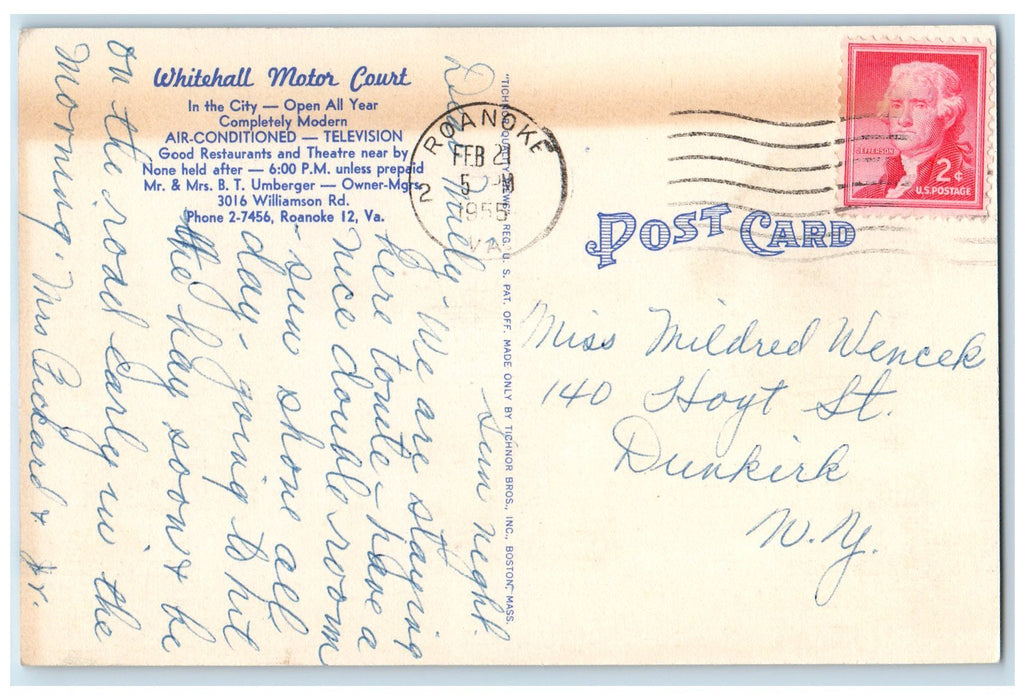 Whitehall Motor Court
In the City — Open All Year
Completely Modern
AIR-CONDITIONED — TELEVISION
Good Restaurants and Theatre near by
None held after — 6:00 P.M. unless prepaid
Mr. & Mrs. B. T. Umberger — Owner-Mgrs.
3016 Williamson Rd.
Phone 2-7456, Roanoke 12, Va.
Sun night
Dear Milly - We are staying
here tonite - have a
nice double room
- sun shone all
day - going to hit
the hay soon & be
on the road early in the
morning. Mrs Pickard & Jr.
REG. U. S. PAT. OFF. MADE ONLY BY TICHNOR BROS., INC., BOSTON, MASS.
ROANOKE
FEB 21
5 PM
1955
VA
2
JEFFERSON
2¢
U.S. POSTAGE
POST CARD
Miss Mildred Wencek
140 Hoyt St.
Dunkirk
N.Y.